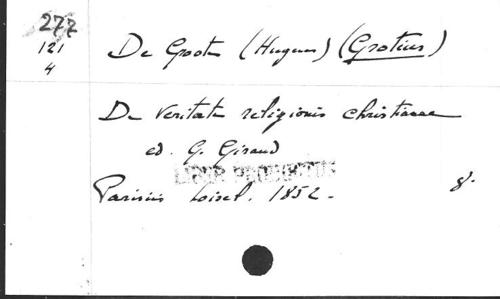 277
121
4
De Groot (Hugues) (Grotius)
De veritate religionis christianae
ed. G. Giraud
LIBER PROHIBITUS
Parisiis Loisel. 1852.
8.